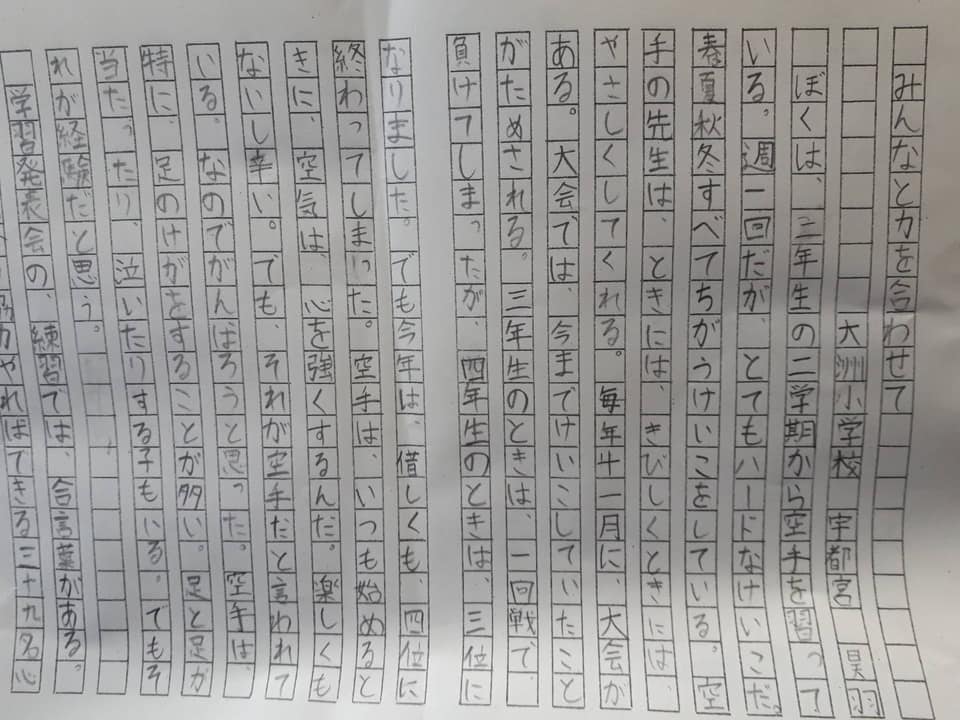 みんなと力を合わせて
大洲小学校　宇都宮　昊羽
ぼくは、三年生の二学期から空手を習って
いる。週一回だが、とてもハードなけいこだ。
春夏秋冬すべてちがうけいこをしている。空
手の先生は、ときには、きびしくときには、
やさしくしてくれる。毎年十一月に、大会が
ある。大会では、今までけいこしていたこと
がためされる。三年生のときは、一回戦で、
負けてしまったが、四年生のときは、三位に
なりました。でも今年は、借しくも、四位に
終わってしまった。空手は、いつも始めると
きに、空気は、心を強くするんだ。楽しくも
ないし辛い。でも、それが空手だと言われて
いる。なのでがんばろうと思った。空手は、
特に、足のけがをすることが多い。足と足が
当たったり、泣いたりする子もいる。でもそ
れが経験だと思う。
学習発表会の、練習では、合言葉がある。
協力やればできる三十九名心